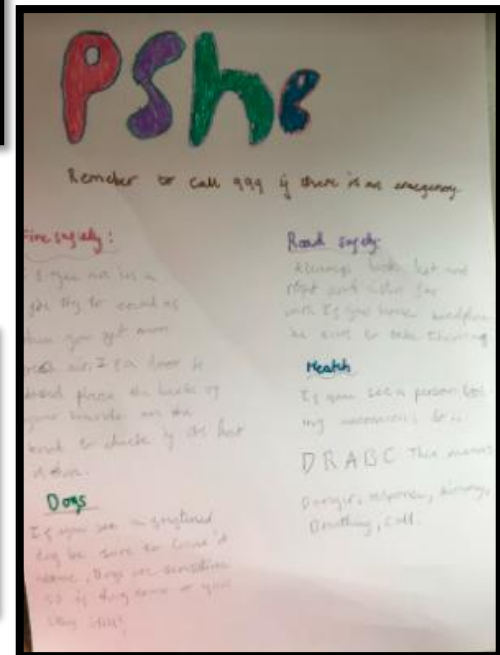 PShe
Remeber to call 999 if there is an emergency
Fire safety:
If you are in a
fire try to crawl as
then you get more
air. If a door is
closed place the back of
your hands on the
to check if its hot
Dogs
If you see a
dog be sure to
, Dogs are sensitive
so if they come at you
stay still!
Road safety:
Always look left and
right and listen for
If you have headphones
be sure to take them
Health
If you see a person
DRABC This means
Danger, response, airway,
Breathing, call.